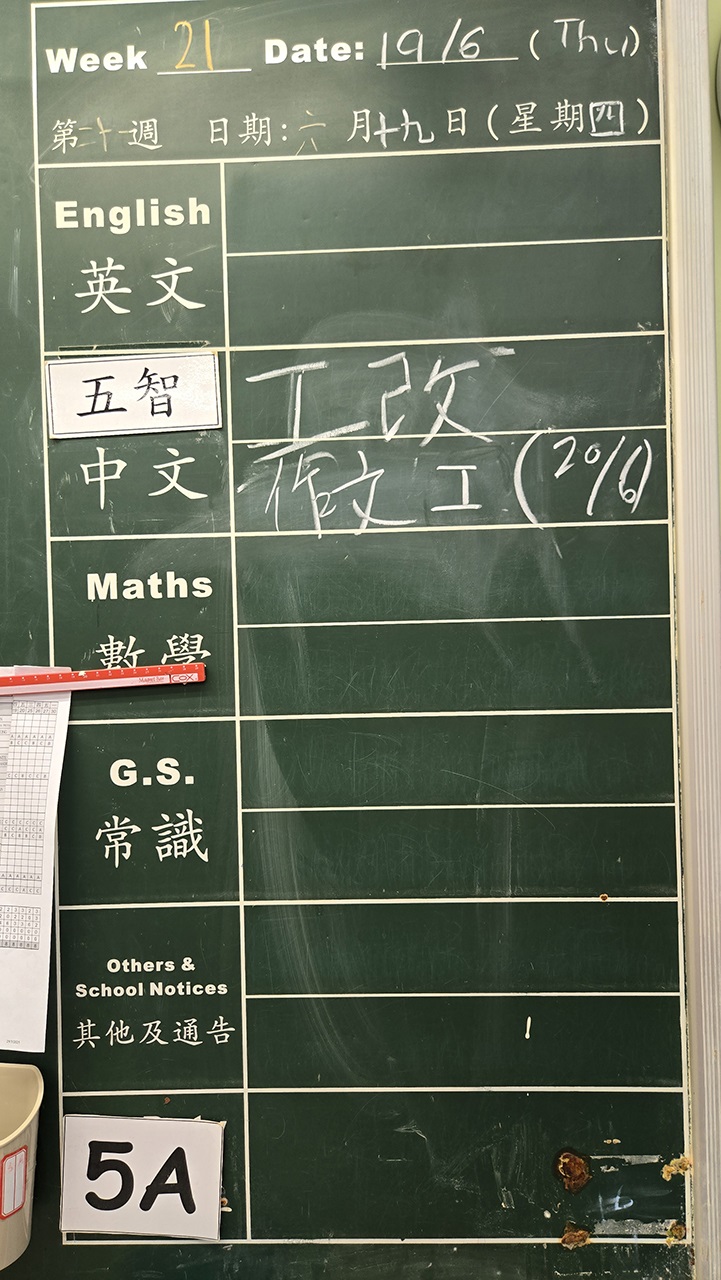 Week 21 Date: 19/6 (Thu)
第二十一週 日期:六月十九日(星期四)
English
英文
五智
工改
中文
作文工(20/6)
Maths
數學
Magnet Bar COX
G.S.
常識
Others &
School Notices
其他及通告
5A